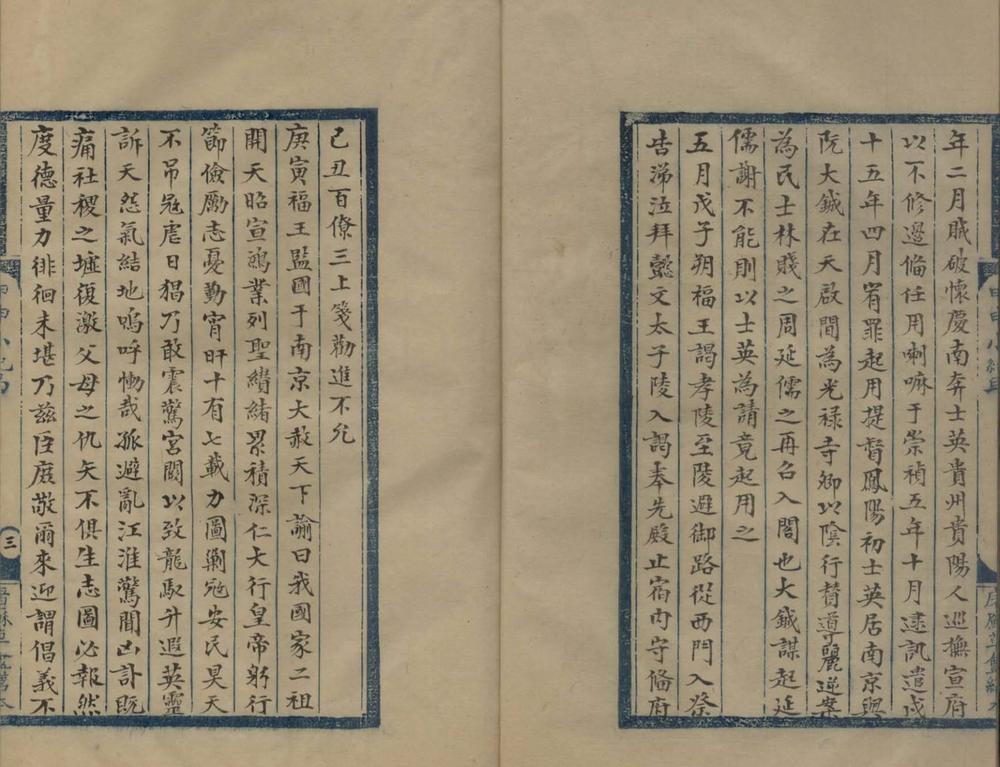 年二月賊破懷慶南奔士英貴州貴陽人巡撫宣府
以不修邊備任用喇嘛于崇禎五年十月逮訊遣戍
十五年四月宥罪起用提督鳳陽初士英居南京與
阮大鋮在天啟間為光禄寺卿以陰行贊導麗逆案
為民士林賤之周延儒之再召入閣也大鋮謀起延
儒謝不能則以士英為請竟起用之
五月戊子朔福王謁孝陵至陵避御路從西門入祭
告涕泣拜懿文太子陵入謁奉先殿止宿内守備府
己丑百僚三上箋勸進不允
庚寅福王監國于南京大赦天下諭曰我國家二祖
開天昭宣鴻業列聖纘緒累積深仁大行皇帝躬行
節儉勵志憂勤宵旰十有七載力圖剿寇安民昊天
不弔寇虐日猖乃敢震驚宮闕以致龍馭升遐英靈
訴天怨氣結地嗚呼慟哉孤避亂江淮驚聞凶訃既
痛社稷之墟復激父母之仇矢不俱生志圖必報然
度德量力徘徊未堪乃兹臣庶敬爾來迎謂倡義不
三